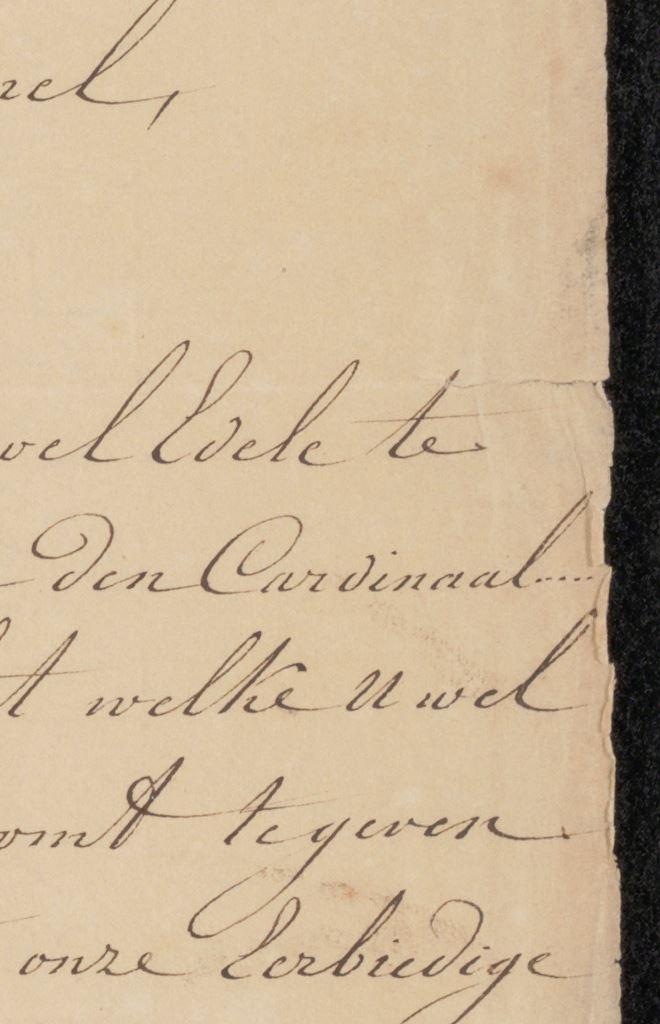 wel Edele te
den Cardinaal.....
welke U wel
te geven
onze Eerbiedige